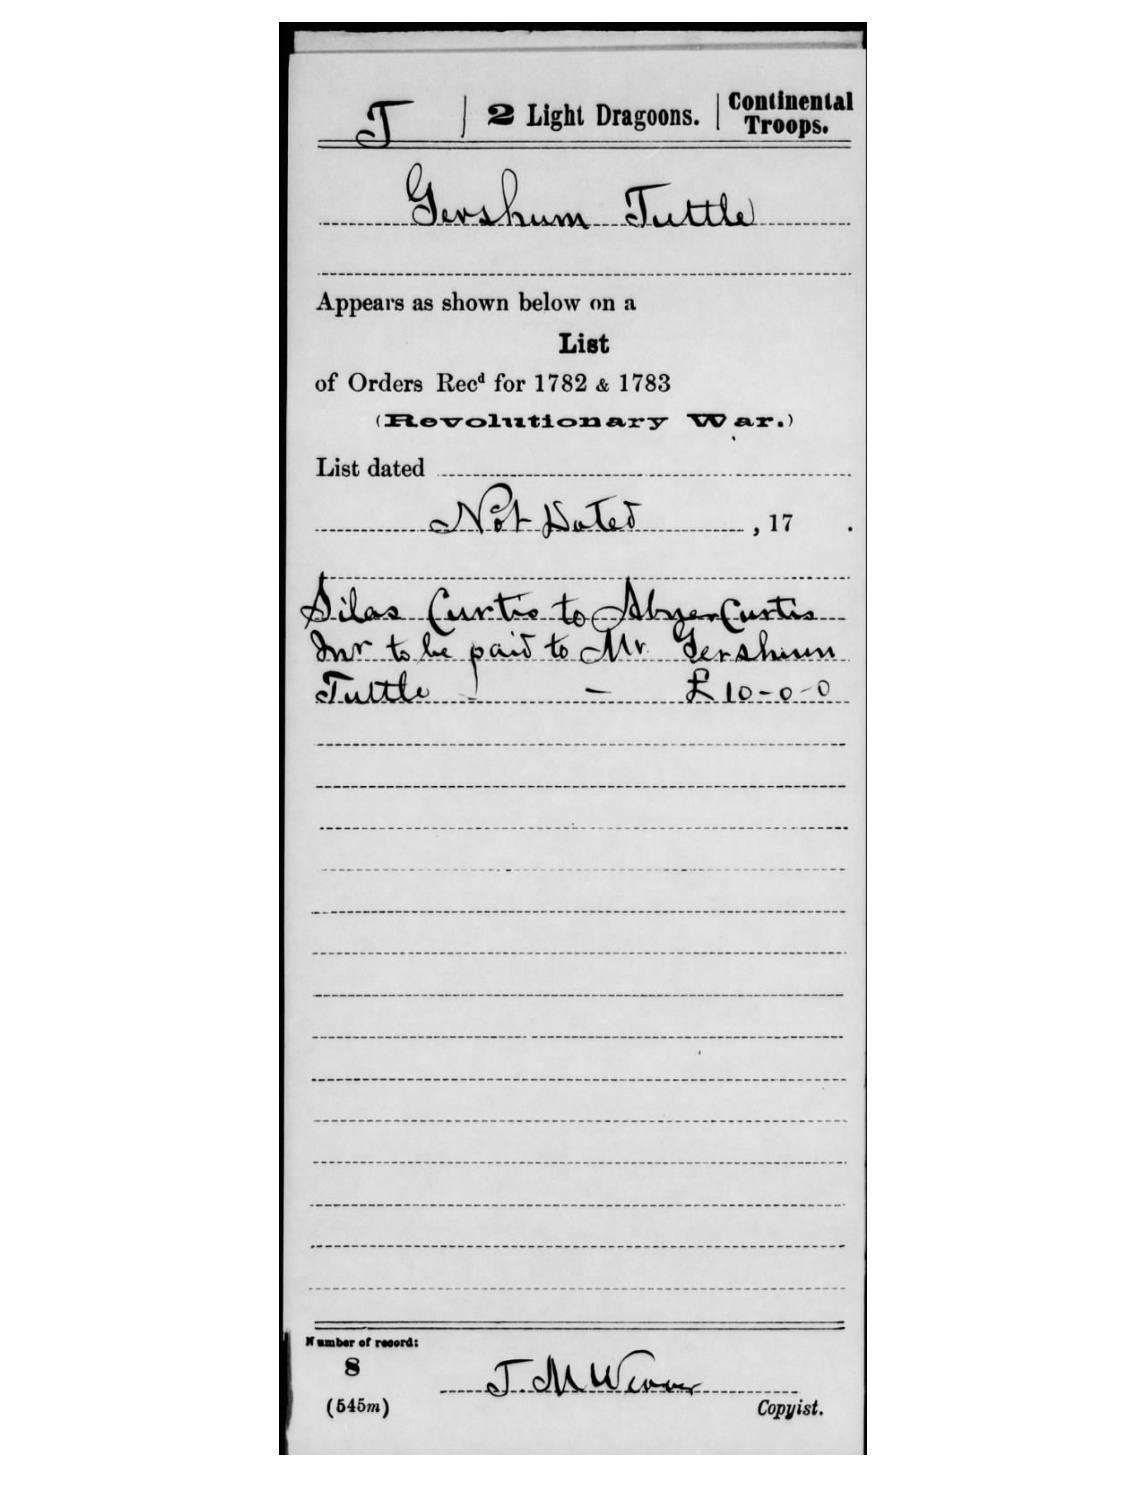 T | 2 Light Dragoons. | Continental Troops.
Gershum Tuttle
Appears as shown below on a
List
of Orders Recᵈ for 1782 & 1783
(Revolutionary War.)
List dated
Not Dated , 17 .
Silas Curtis to Abner Curtis
Jnr to be paid to Mr. Gershum
Tuttle - £10-0-0
Number of record:
8
(545m)
J. M. Weaver
Copyist.